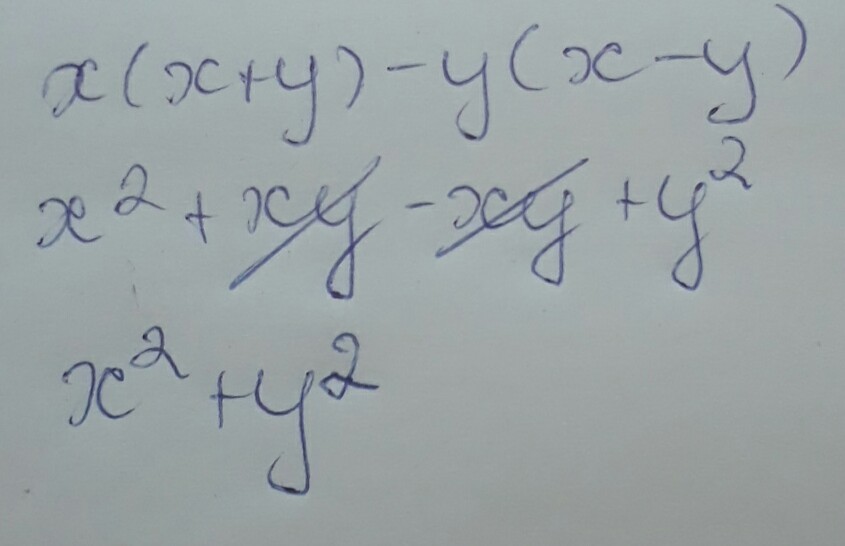 x(x+y)-y(x-y)
x² + xy - xy + y²
x² + y²